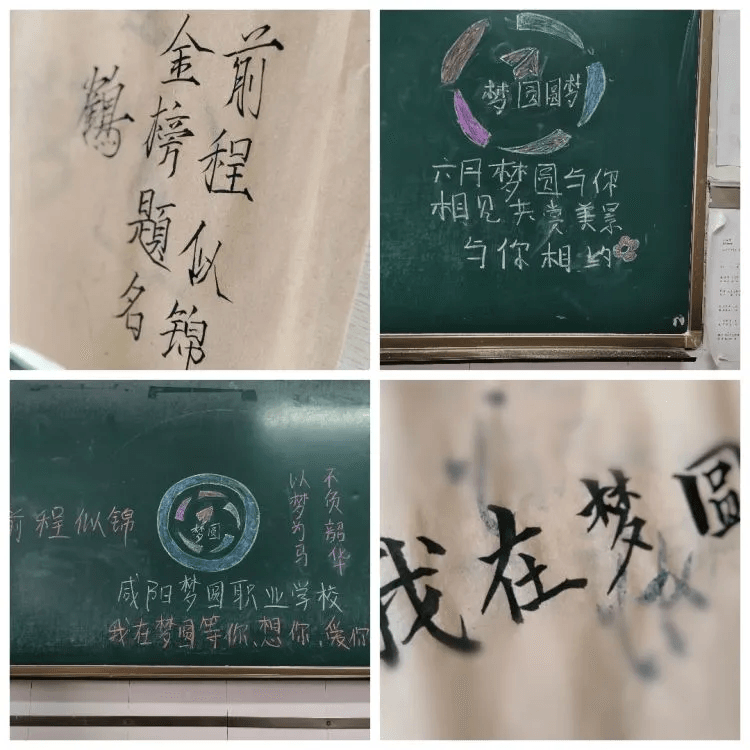 前程似锦
金榜題名
鶴
梦圆圆梦
六月梦圆与你
相见共赏美景
与你相约
前程似锦
梦圆
不负韶华
以梦为马
咸阳梦圆职业学校
我在梦圆等你、想你、爱你
我在梦圆